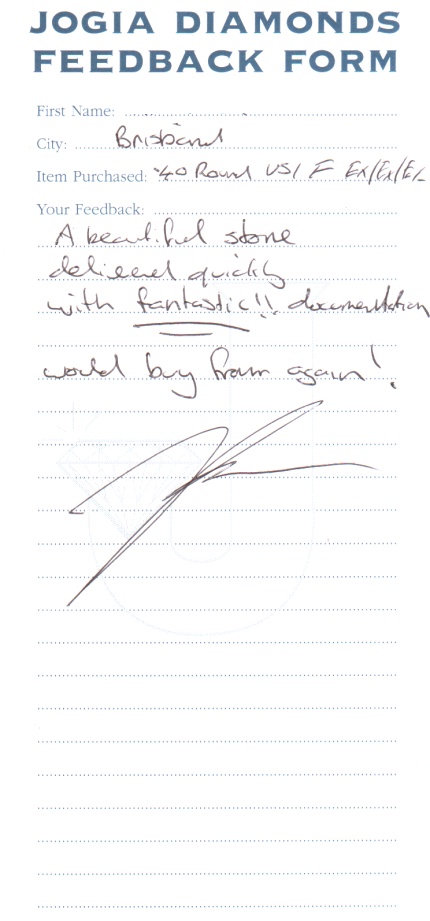 JOGIA DIAMONDS
FEEDBACK FORM
First Name:
City: Brisbane
Item Purchased: .40 Round VS1 F Ex/Ex/Ex
Your Feedback:
A beautiful stone
delivered quickly
with fantastic!! documentation
would buy from again!